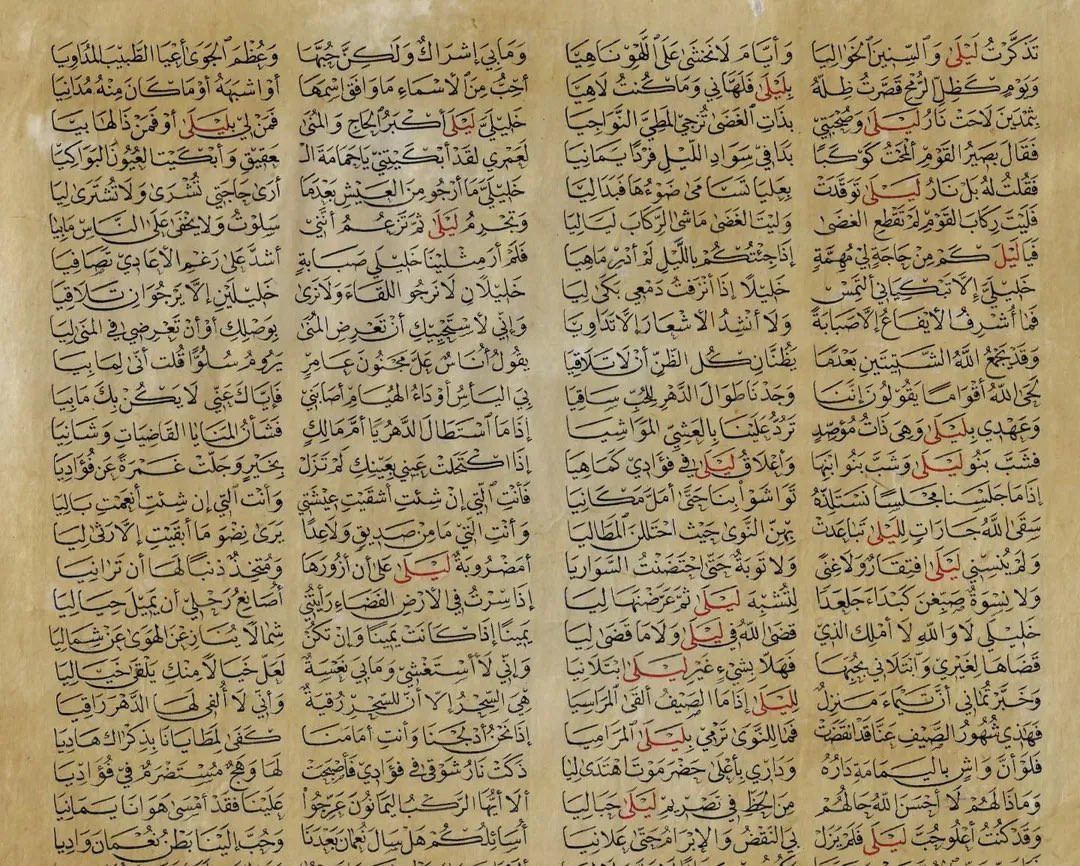 تذكرت ليلى والسنين الخواليا وأيام لا نخشى على اللهو ناهيا
ويوم كظل الرمح قصرت ظله بليلى فلهاني وما كنت لاهيا
بثمدين لاحت نار ليلى وصحبتي بذات الغضى تزجي المطي النواجيا
فقال بصير القوم ألمحت كوكبا بدا في سواد الليل فردا يمانيا
فقلت له بل نار ليلى توقدت بعليا تسامى ضوءها فبدا ليا
فليت ركاب القوم لم تقطع الغضى وليت الغضى ماشى الركاب لياليا
فيا ليل كم من حاجة لي مهمة إذا جئتكم بالليل لم أدر ماهيا
خليلي إلا تبكياني ألتمس خليلا إذا أنزفت دمعي بكى ليا
فما أشرف الأيفاع إلا صبابة ولا أنشد الأشعار إلا تداويا
وقد يجمع الله الشتيتين بعدما يظنان كل الظن أن لا تلاقيا
لحى الله أقواما يقولون إننا وجدنا طوال الدهر للحب ساقيا
وعهدي بليلى وهي ذات مؤصد ترد علينا بالعشي المواشيا
فشب بنو ليلى وشب بنو ابنها وأعلاق ليلى في فؤادي كما هيا
إذا ما جلسنا مجلسا نستلذه تواشوا بنا حتى أمل مكانيا
سقى الله جارات لليلى تباعدت بهن النوى حيث احتللن المطاليا
ولم ينسني ليلى افتقار ولا غنى ولا توبة حتى احتضنت السواريا
ولا نسوة صبغن كبداء جلعدا لتشبه ليلى ثم عرضنها ليا
خليلي لا والله لا أملك الذي قضى الله في ليلى ولا ما قضى ليا
قضاها لغيري وابتلاني بحبها فهلا بشيء غير ليلى ابتلانيا
وخبرتماني أن تيماء منزل لليلى إذا ما الصيف ألقى المراسيا
فهذي شهور الصيف عنا قد انقضت فما للنوى ترمي بليلى المراميا
فلو أن واش باليمامة داره وداري بأعلى حضرموت اهتدى ليا
وماذا لهم لا أحسن الله حالهم من الحظ في تصريم ليلى حباليا
وقد كنت أعلو حب ليلى فلم يزل بي النقض والإبرام حتى علانيا
وما بي إشراك ولكن حبها وعظم الجوى أعيا الطبيب المداويا
أحب من الأسماء ما وافق اسمها أو اشبهه أو ما كان منه مدانيا
خليلي ليلى أكبر الحاج والمنى فمن لي بليلى أو فمن ذا لها بيا
لعمري لقد أبكيتني يا حمامة الـ عقيق وأبكيت العيون البواكيا
خليلي ما أرجو من العيش بعدما أرى حاجتي تشرى ولا تشترى ليا
وتجرم ليلى ثم تزعم أنني سلوت ولا يخفى على الناس ما بيا
فلم أر مثلينا خليلي صبابة أشد على رغم الأعادي تصافيا
خليلان لا نرجو اللقاء ولا نرى خليلين إلا يرجوان تلاقيا
وإني لأستحييك أن تعرض المنى بوصلك أو أن تعرضي في المنى ليا
يقول أناس عل مجنون عامر يروم سلوا قلت أنى لما بيا
بي اليأس أو داء الهيام أصابني فإياك عني لا يكن بك ما بيا
إذا ما استطال الدهر يا أم مالك فشأن المنايا القاضيات وشانيا
إذا اكتحلت عيني بعينك لم تزل بخير وجلت غمرة عن فؤاديا
فأنت التي إن شئت أشقيت عيشتي وأنت التي إن شئت أنعمت باليا
وأنت التي ما من صديق ولا عدا يرى نضو ما أبقيت إلا رثى ليا
أمضروبة ليلى على أن أزورها ومتخذ ذنبا لها أن ترانيا
إذا سرت في الأرض الفضاء رأيتني أصانع رحلي أن يميل حياليا
يمينا إذا كانت يمينا وإن تكن شمالا ينازعن الهوى عن شماليا
وإني لأستغشي وما بي نعسة لعل خيالا منك يلقى خياليا
هي السحر إلا أن للسحر رقية وأني لا ألفي لها الدهر راقيا
إذا نحن أدلجنا وأنت أمامنا كفى لمطايانا بذكراك هاديا
ذكت نار شوقي في فؤادي فأصبحت لها وهج مستضرم في فؤاديا
ألا أيها الركب اليمانون عرجوا علينا فقد أمسى هوانا يمانيا
أسائلكم هل سال نعمان بعدنا وحب إلينا بطن نعمان واديا